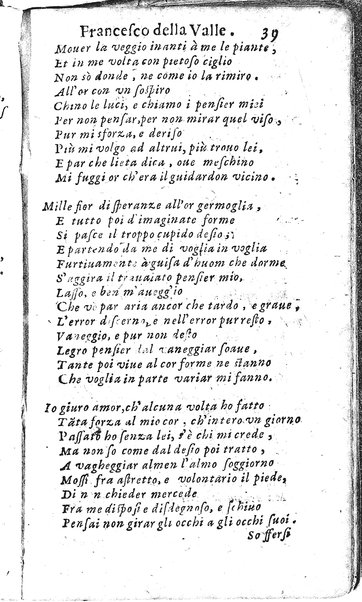 Francesco della Valle. 39
Mouer la veggio inanti à me le piante,
Et in me volta con pietoso ciglio
Non sò donde, ne come io la rimiro.
All'or con vn sospiro
Chino le luci, e chiamo i pensier miei
Per non pensar, per non mirar quel viso,
Pur mi sforza, e deriso
Più mi volgo ad altrui, più trouo lei,
E par che lieta dica, oue meschino
Mi fuggi or ch'era il guiderdon vicino.
Mille fior di speranze all'or germoglia,
E tutto poi d'imaginate forme
Si pasce il troppo cupido desio;
E partendo da me di voglia in voglia
Furtiuamente à guisa d'huom che dorme
S'aggira il trauaiato pensier mio.
Lasso, e ben m'aueggio
Che vò par aria ancor che tardo, e graue,
L'error discerno, e nell'error pur resto,
Vaneggio, e pur non desto
Legro pensier dal vaneggiar soaue,
Tante poi viue al cor forme ne stanno
Che voglia in parte variar mi fanno.
Io giuro amor, ch'alcuna volta ho fatto
Tãta forza al mio cor, ch'intero vn giorno
Passato ho senza lei, s'è chi mi crede,
Ma non so come dal desio poi tratto,
A vagheggiar almen l'almo soggiorno
Mossi fra astretto, e volontario il piede,
Di non chieder mercede
Fra me disposi e disdegnoso, e schiuo
Pensai non girar gli occhi a gli occhi suoi.
Soffersi